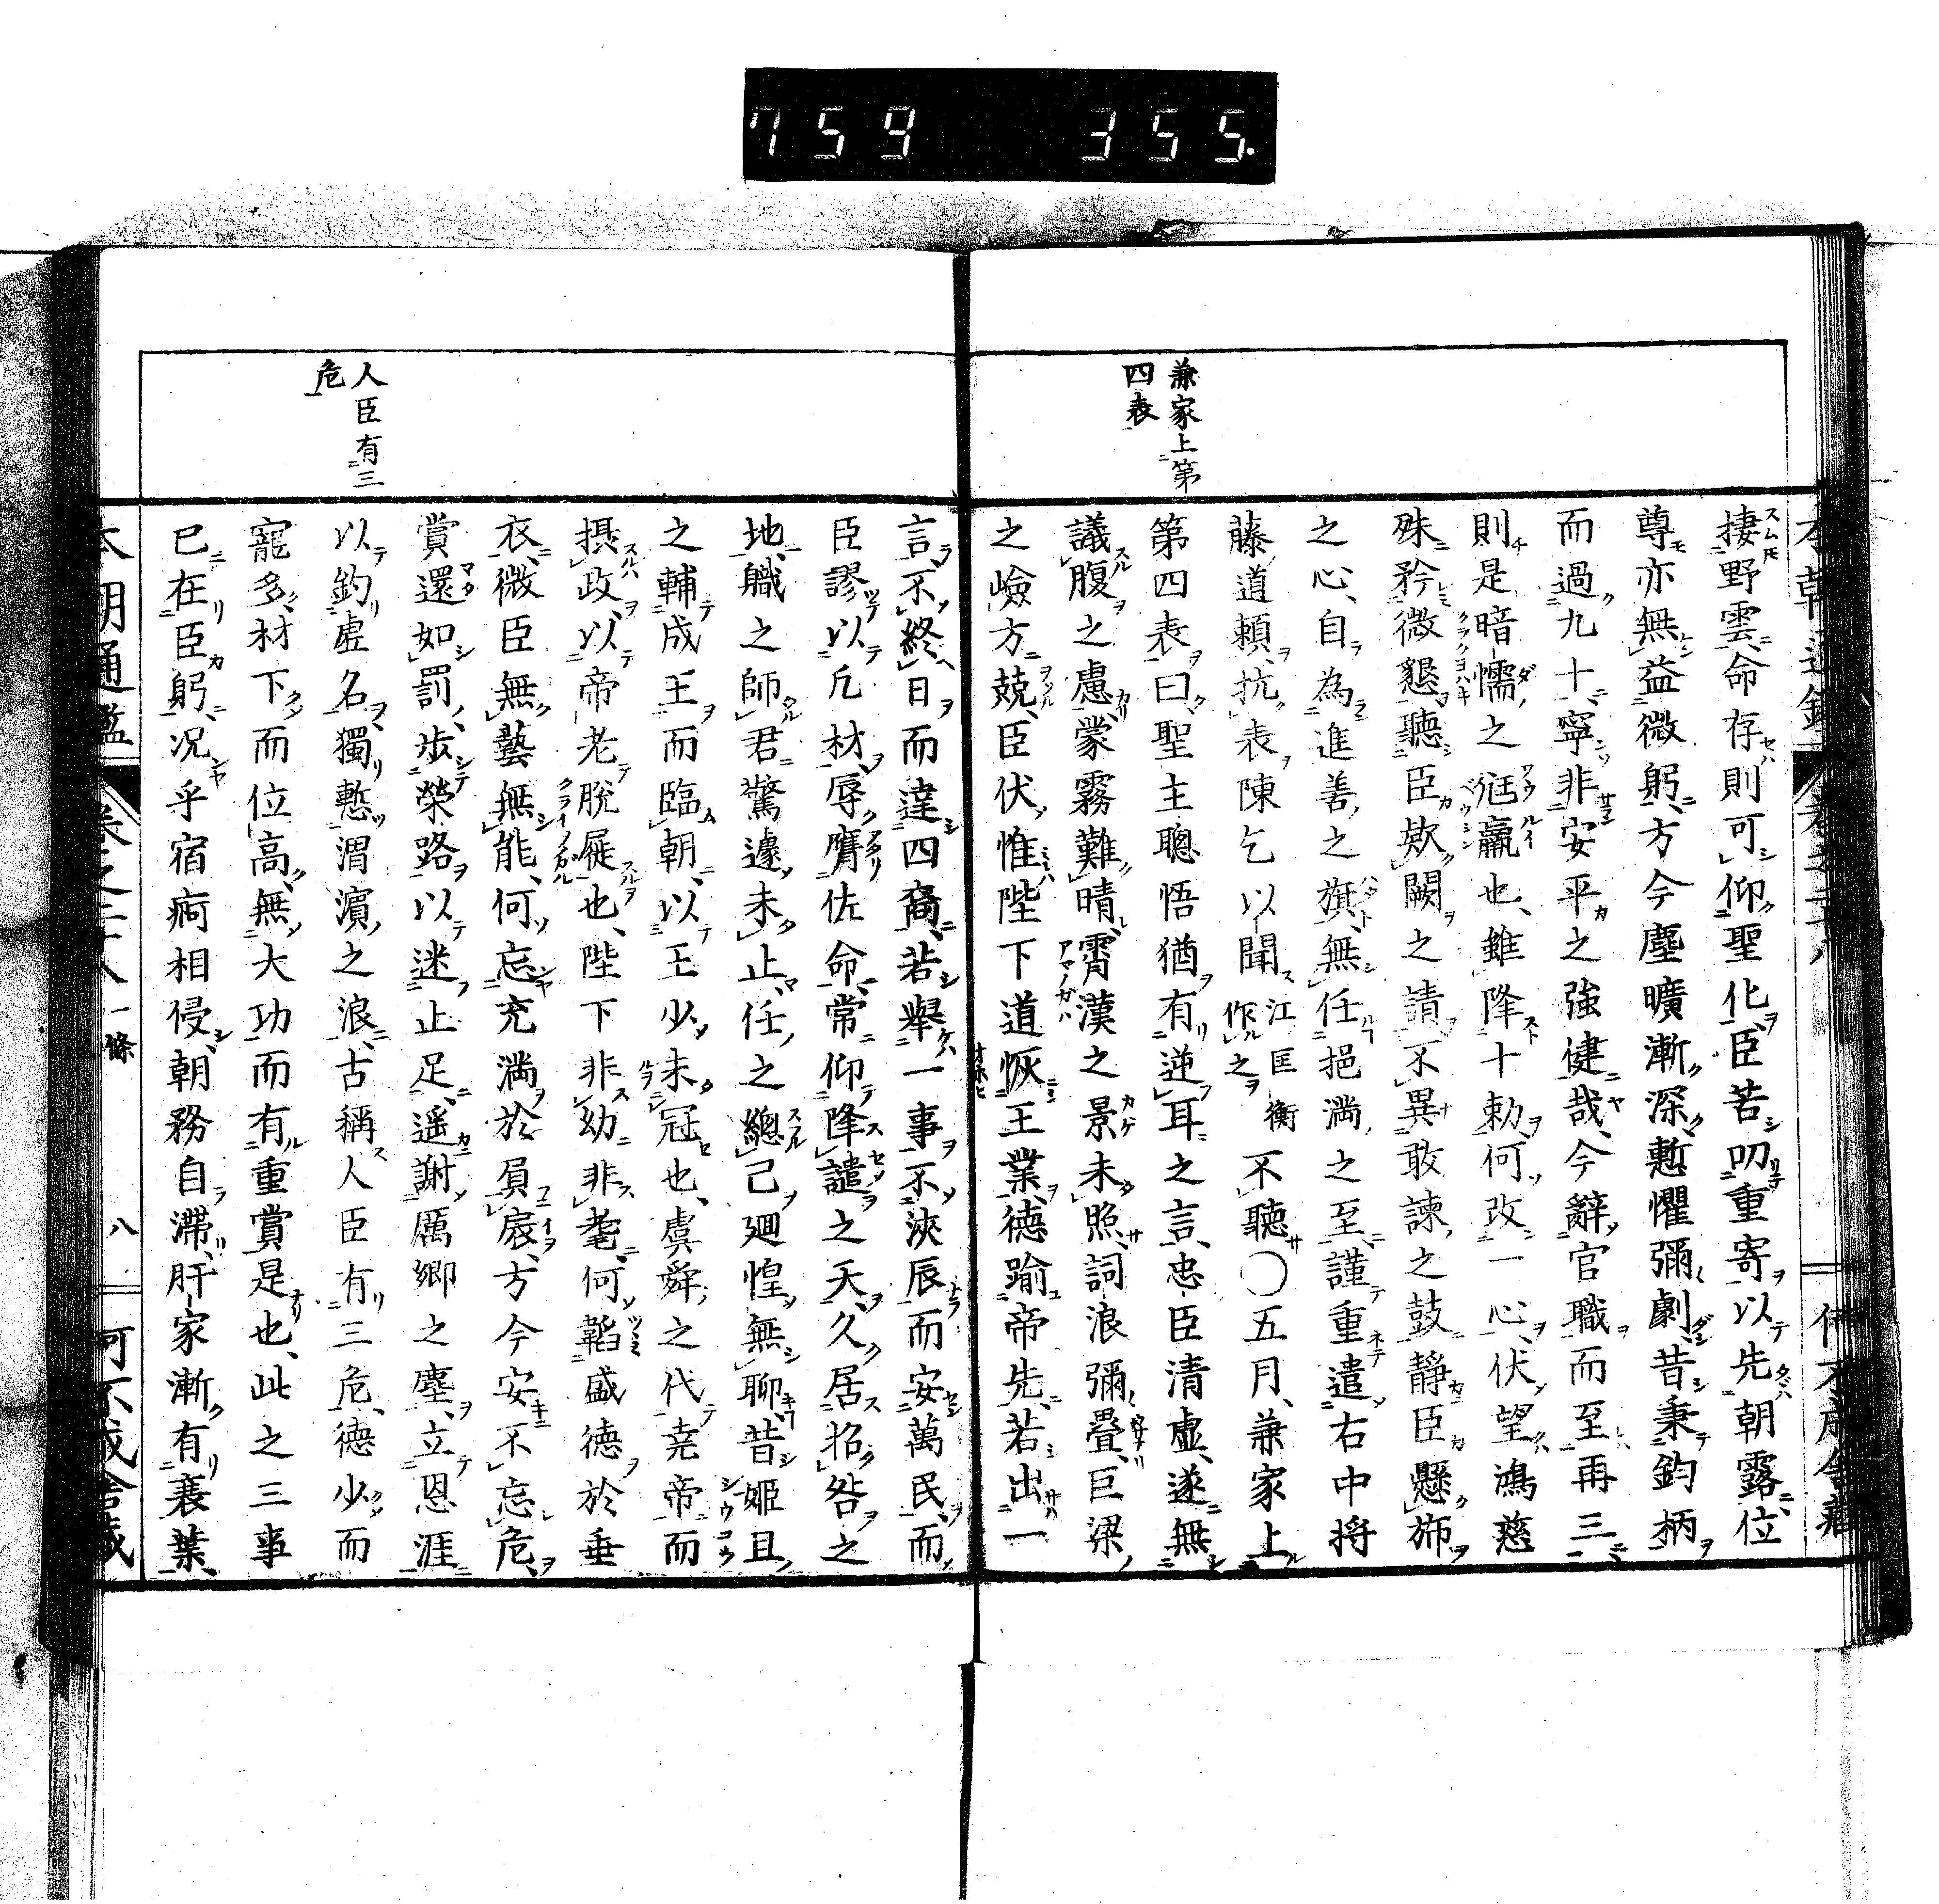 759 355.
兼家上第
四表
棲野雲命存則可仰聖化臣苦叨重寄以先朝露位
尊亦無益微躬方今塵曠漸深慙懼彌劇昔秉鈞柄
而過九十寧非安平之強健哉今辭官職而至再三
則是暗懦之尫羸也雖降十勅何改一心伏望鴻慈
殊矜微懇聽臣欵闕之請不異敢諫之鼓靜臣懸斾
之心自為進善之旗無任挹満之至謹重遣右中将
藤道頼抗表陳乞以聞江匡衡作之不聽〇五月兼家上
第四表曰聖主聰悟猶有逆耳之言忠臣清虚遂無
議腹之慮蒙霧難晴霄漢之景未照詞浪彌疊巨梁
之嶮方兢臣伏惟陛下道恢王業德踰帝先若出一
人臣有三
危
言不終日而違四裔若舉一事不浹辰而安萬民而
臣謬以凡材辱膺佐命常仰降譴之天久居招咎之
地職之師君驚遽未止任之總己廻惶無聊昔姫旦
之輔成王而臨朝以王少未冠也虞舜之代尭帝而
摂政以帝老脱屣也陛下非幼非耄何韜盛德於垂
衣微臣無藝無能何忘充満於負扆方今安不忘危
賞還如罰歩榮路以迷止足遥謝厲郷之塵立恩涯
以釣虚名獨慙渭濵之浪古稱人臣有三危德少而
寵多材下而位高無大功而有重賞是也此之三事
已在臣躬况乎宿痾相侵朝務自滞肝家漸有衰葉
本朝通鑑 一條 八